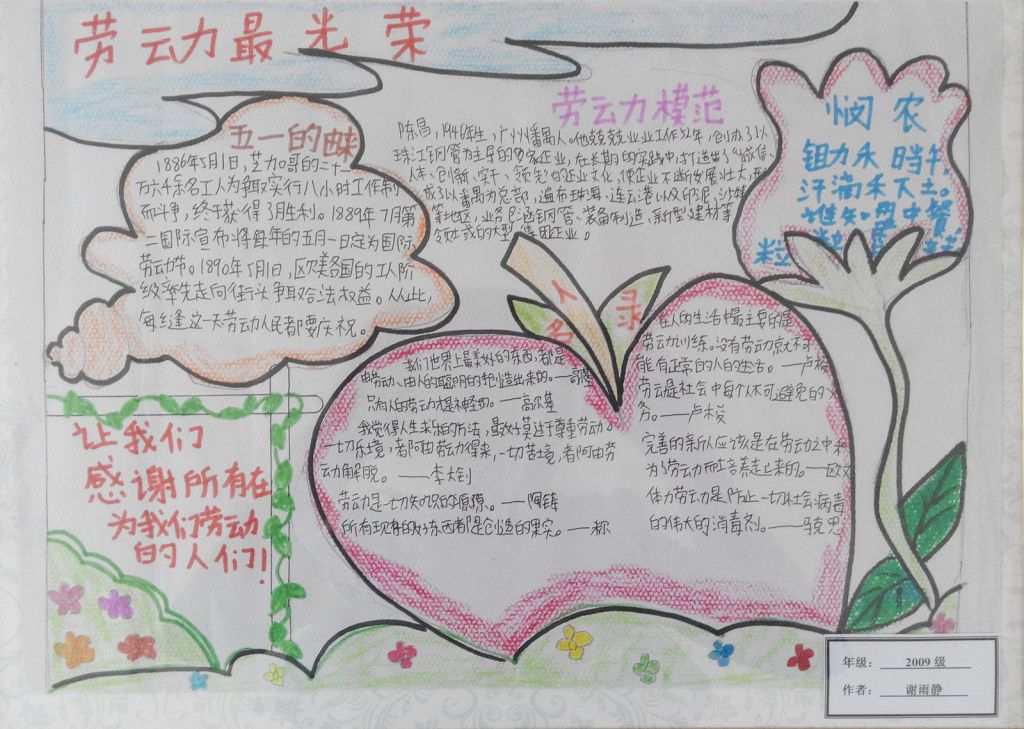 劳动最光荣
五一的由来
1886年5月1日，芝加哥的二十一
万六千余名工人为争取实行八小时工作制
而斗争，终于获得了胜利。1889年7月第
二国际宣布将每年的五月一日定为国际
劳动节。1890年5月1日，欧美各国的工人阶
级率先走向街头争取合法权益。从此，
每逢这一天劳动人民都要庆祝。
劳动力模范
陈昌，1940年生，广州番禺人。他兢兢业业工作 年，创办了以
珠江钢管为主导的 家企业，在长期的实践中，打造出了“诚信、
人本、创新、实干、领先”的企业文化，使企业不断发展壮大，形
成了以番禺为总部，遍布珠海、连云港以及印尼、沙特
等地区，业务 涵钢管、装备制造、新型建材等
领域的大型 集团企业。
悯农
锄力禾日当午，
汗滴禾下土。
谁知盘中餐
粒
名人
录
我们世界上最美好的东西，都是
由劳动、由人的聪明的手创造出来的。——高
只有人的劳动才是神圣的。——高尔基
我觉得人生求乐的方法，最好莫过于尊重劳动。
一切乐境，都由劳动得来，一切苦境，都由劳
动解脱。——李大钊
劳动是一切知识的源泉。——陶铸
所有现存的好东西都是创造的果实。——穆
在人的生活中最主要的是
劳动训练。没有劳动就不可
能有正常的人的生活。——卢梭
劳动是社会中每个人不可避免的义
务。——卢梭
完善的新人应该是在劳动之中和
为了劳动而培养起来的。——欧文
体力劳动是防止一切社会病毒
的伟大的消毒剂。——马克思
让我们
感谢所有在
为我们劳动
的人们！
年级： 2009 级
作者： 谢雨静